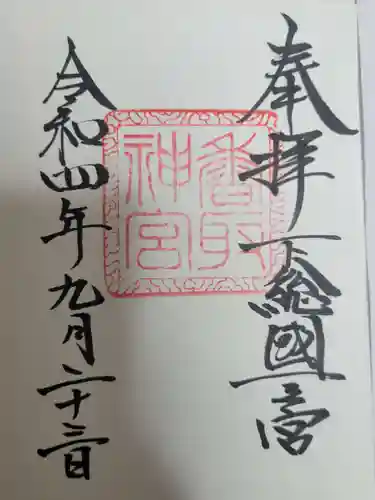 奉拝 下總國一宮
香取
神宮
令和四年九月二十三日